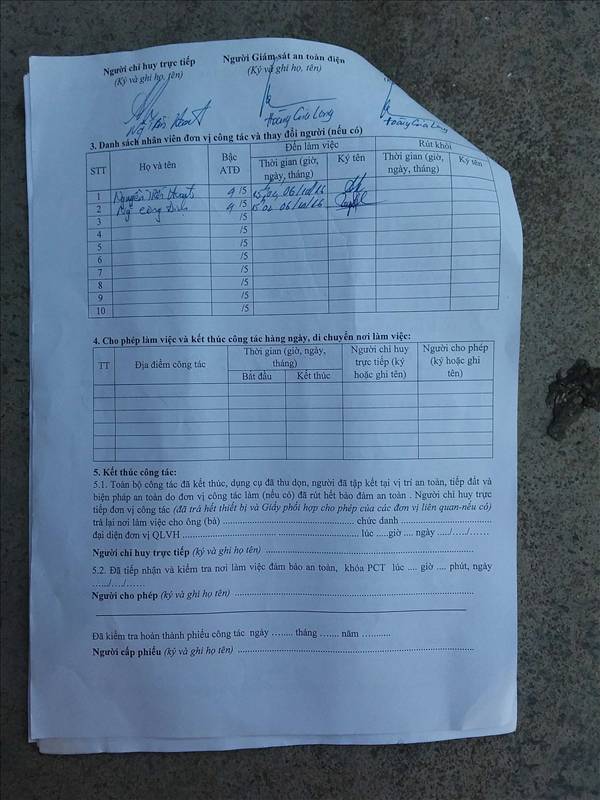 Người chỉ huy trực tiếp
(Ký và ghi họ, tên)
Người Giám sát an toàn điện
(Ký và ghi họ, tên)
Hoàng Cửu Long
Hoàng Cửu Long
3. Danh sách nhân viên đơn vị công tác và thay đổi người (nếu có)
STT
Họ và tên
Bậc ATĐ
Đến làm việc
Rút khỏi
Thời gian (giờ, ngày, tháng)
Ký tên
Thời gian (giờ, ngày, tháng)
Ký tên
1 Nguyễn 4 /5 06/10/16
2 Ng Công Định 4 /5 06/10/16
3 /5
4 /5
5 /5
6 /5
7 /5
8 /5
9 /5
10 /5
4. Cho phép làm việc và kết thúc công tác hàng ngày, di chuyển nơi làm việc:
TT
Địa điểm công tác
Thời gian (giờ, ngày, tháng)
Bắt đầu
Kết thúc
Người chỉ huy trực tiếp (ký hoặc ghi tên)
Người cho phép (ký hoặc ghi tên)
5. Kết thúc công tác:
5.1. Toàn bộ công tác đã kết thúc, dụng cụ đã thu dọn, người đã tập kết tại vị trí an toàn, tiếp đất và
biện pháp an toàn do đơn vị công tác làm (nếu có) đã rút hết bảo đảm an toàn . Người chỉ huy trực
tiếp đơn vị công tác (đã trả hết thiết bị và Giấy phối hợp cho phép của các đơn vị liên quan-nếu có)
trả lại nơi làm việc cho ông (bà) ................................................ chức danh ................................
đại diện đơn vị QLVH ................................................................ lúc .....giờ .... ngày ...../...../......
Người chỉ huy trực tiếp (ký và ghi họ tên) ................................................................
5.2. Đã tiếp nhận và kiểm tra nơi làm việc đảm bảo an toàn, khóa PCT lúc .... giờ .... phút, ngày
....../..../......
Người cho phép (ký và ghi họ tên) ................................................................
Đã kiểm tra hoàn thành phiếu công tác ngày ....... tháng ....... năm ..........
Người cấp phiếu (ký và ghi họ tên) ................................................................